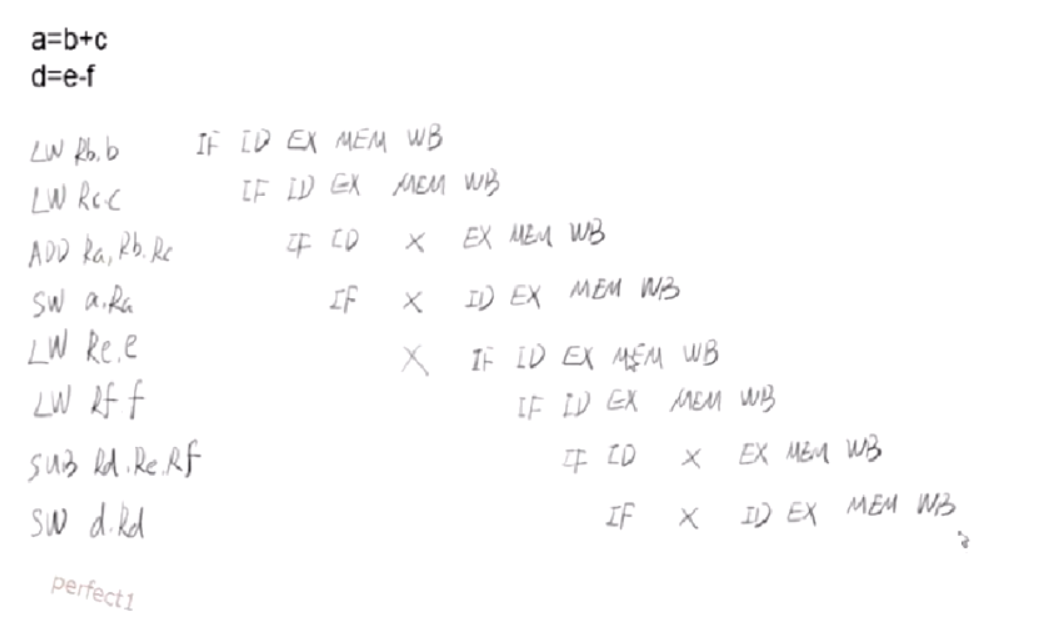 a=b+c
d=e-f
LW Rb.b IF ID EX MEM WB
LW Rc.c IF ID EX MEM WB
ADD Ra,Rb.Rc IF ID X EX MEM WB
SW a.Ra IF X ID EX MEM WB
LW Re.e X IF ID EX MEM WB
LW Rf.f IF ID EX MEM WB
SUB Rd.Re.Rf IF ID X EX MEM WB
SW d.Rd IF X ID EX MEM WB
perfect1